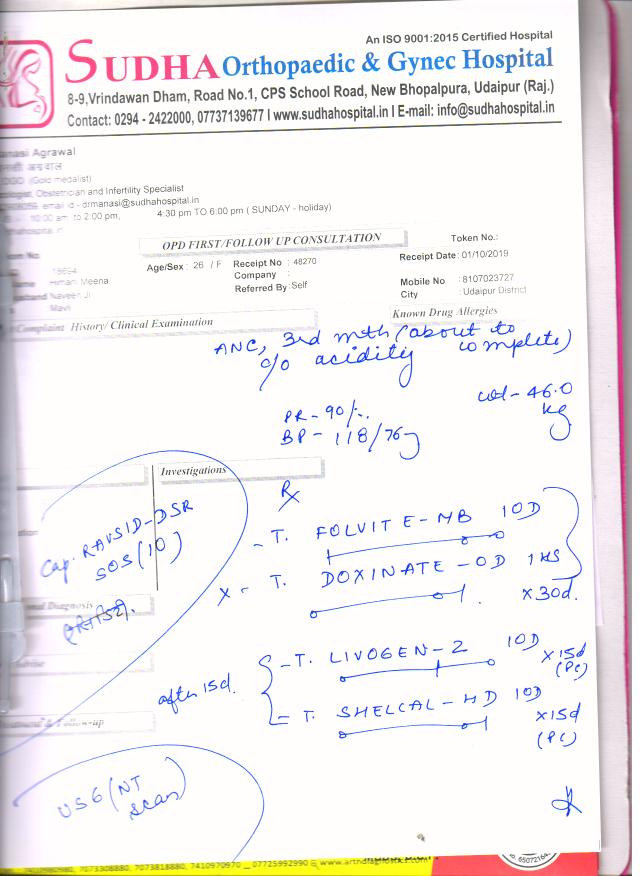 An ISO 9001:2015 Certified Hospital
SUDHA Orthopaedic & Gynec Hospital
8-9,Vrindawan Dham, Road No.1, CPS School Road, New Bhopalpura, Udaipur (Raj.)
Contact: 0294 - 2422000, 07737139677 I www.sudhahospital.in I E-mail: info@sudhahospital.in
anasi Agrawal
अग्रवाल
(Gold medalist)
Obstetrician and Infertility Specialist
email id - drmanasi@sudhahospital.in
10:00 am to 2:00 pm, 4:30 pm TO 6:00 pm ( SUNDAY - holiday)
OPD FIRST/FOLLOW UP CONSULTATION
Token No.:
18694
Age/Sex : 26 / F
Receipt No : 48270
Receipt Date: 01/10/2019
Himan Meena
Company :
Mobile No : 8107023727
Naveen Ji
Referred By : Self
City : Udaipur District
Mavli
Complaint History/ Clinical Examination
Known Drug Allergies
ANC, 3rd mth (about to complete)
c/o acidity
PR - 90/-.
wt - 46.0 kg
BP - 118/76
Investigations
Rx
Cap. RAVSID-DSR
SOS (10)
- T. FOLVITE-MB 10D
x - T. DOXINATE-OD 1HS
x 30d.
एसीडिटी.
al Diagnosis
after 15d.
- T. LIVOGEN-Z 10D x 15d (PC)
= T. SHELCAL-HD 10D x 15d (PC)
& Follow-up
USG (NT scan)
7073308880, 7073818880, 7410970970 _ 07725992990 @ www.arthdiagnostics.com